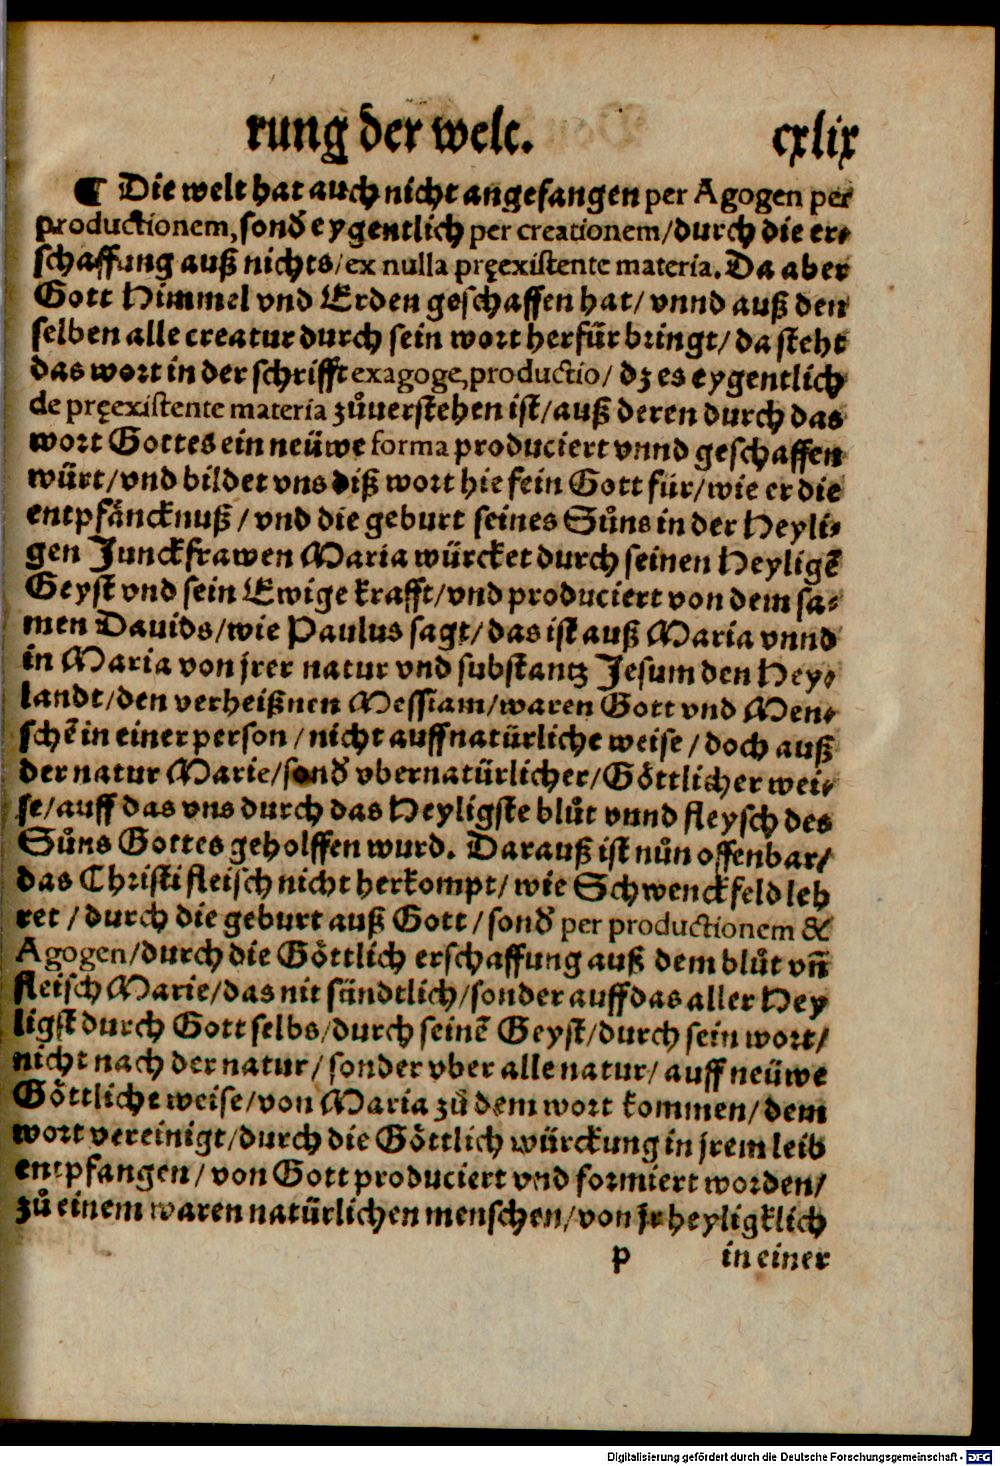 rung der welt. cxlix
¶ Die welt hat auch nicht angefangen per Agogen per
productionem, sonđ eygentlich per creationem/durch die er⸗
schaffung auß nichts/ex nulla pręexistente materia. Da aber
Gott Himmel vnd Erden geschaffen hat/vnnd auß den
selben alle creatur durch sein wort herfür bringt/da steht
das wort in der schrifft exagoge, productio/dz es eygentlich
de pręexistente materia zůuerstehen ist/auß deren durch das
wort Gottes ein neüwe forma produciert vnnd geschaffen
würt/vnd bildet vns diß wort hie fein Gott für/wie er die
entpfäncknuß/vnd die geburt seines Sůns in der Heyli⸗
gen Junckfrawen Maria würcket durch seinen Heyligē
Geyst vnd sein Ewige krafft/vnd produciert von dem sa⸗
men Dauids/wie Paulus sagt/das ist auß Maria vnnd
in Maria von jrer natur vnd substantz Jesum den Hey⸗
landt/den verheißnen Messiam/waren Gott vnd Men⸗
schē in einer person/nicht auff natürliche weise/doch auß
der natur Marie/sonđ vbernatürlicher/Göttlicher wei⸗
se/auff das vns durch das Heyligste blůt vnnd fleysch des
Sůns Gottes geholffen wurd. Darauß ist nůn offenbar/
das Christi fleisch nicht herkompt/wie Schwenckfeld leh
ret/durch die geburt auß Gott/sonđ per productionem &
Agogen/durch die Göttlich erschaffung auß dem blůt vñ
fleisch Marie/das nit sündtlich/sonder auff das aller Hey
ligst durch Gott selbs/durch seinē Geyst/durch sein wort/
nicht nach der natur/sonder vber alle natur/auff neüwe
Göttliche weise/von Maria zů dem wort kommen/dem
wort vereinigt/durch die Göttlich würckung in jrem leib
entpfangen/von Gott produciert vnd formiert worden/
zů einem waren natürlichen menschen/von jr heyligklich
p in einer
Digitalisierung gefördert durch die Deutsche Forschungsgemeinschaft - DFG